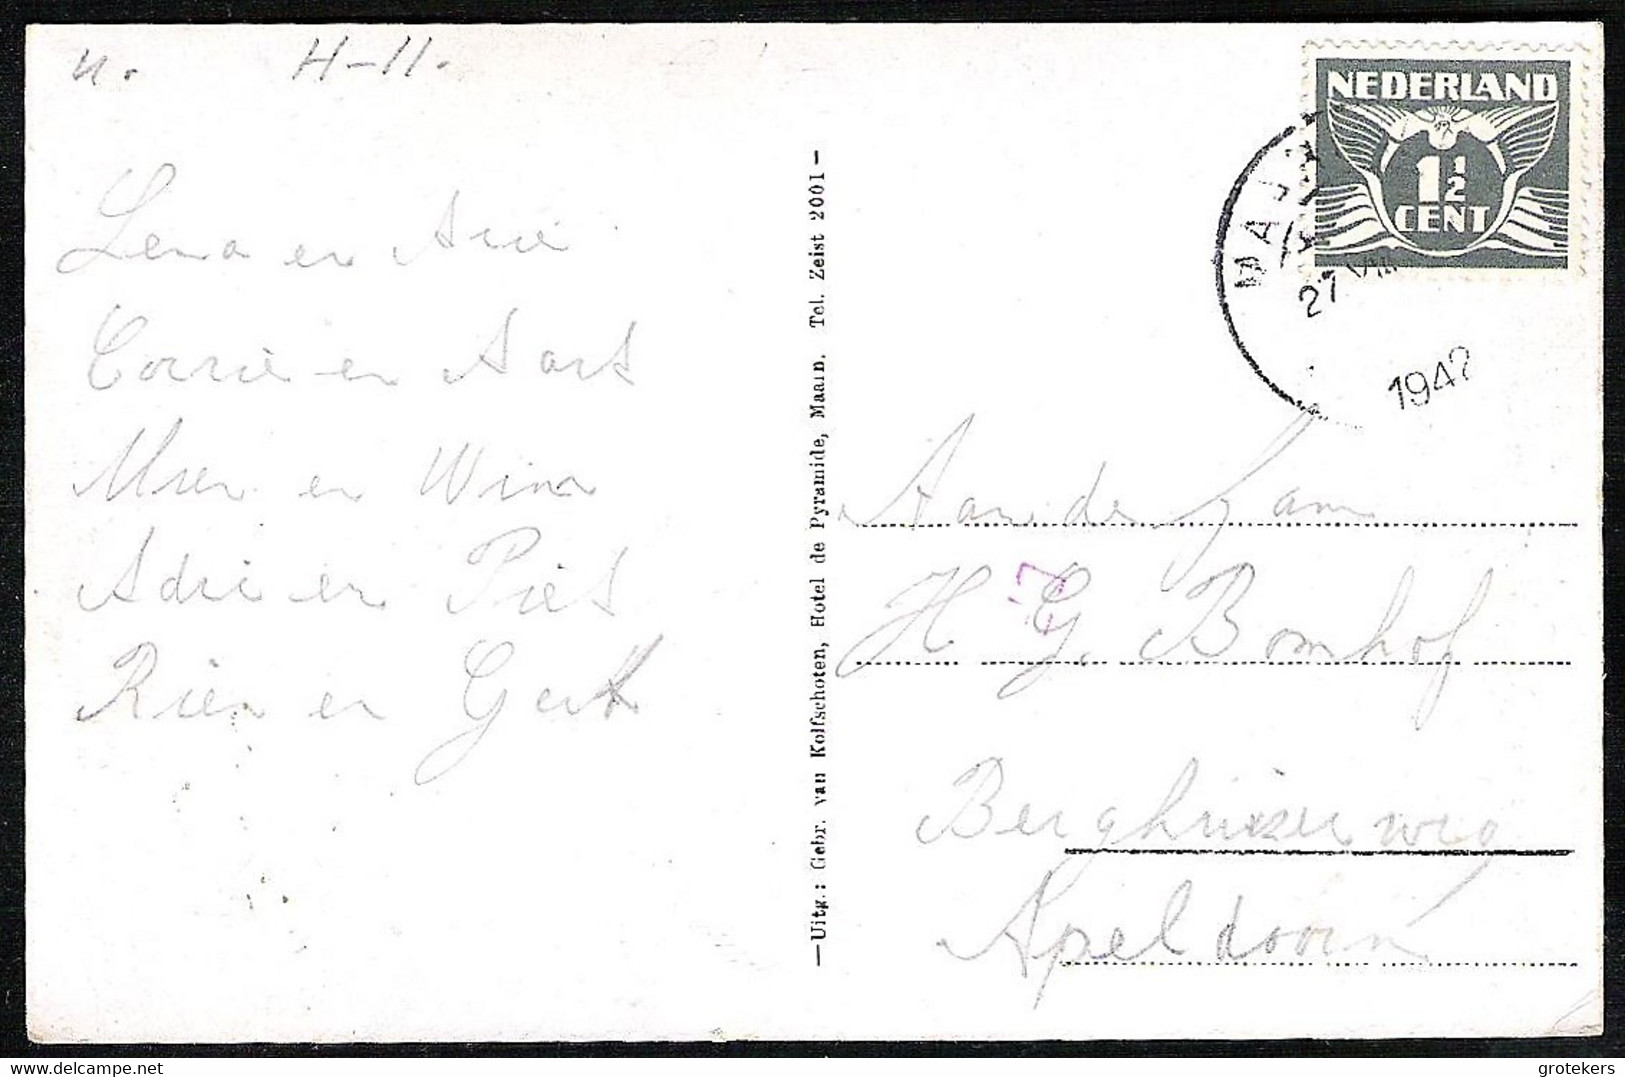 u. H-11.
NEDERLAND
1½
CENT
MAA
27 VIII
1942
Lena en Arie
Corrie en Aart
Mien en Wim
Adri en Piet
Rien en Gert
—Uitg.: Gebr. van Kolfschoten, Hotel de Pyramide, Maarn. Tel. Zeist 2001—
Aan de fam
H G. Bomhof
Berghuizerweg
Apeldoorn
delcampe.net
grotekers